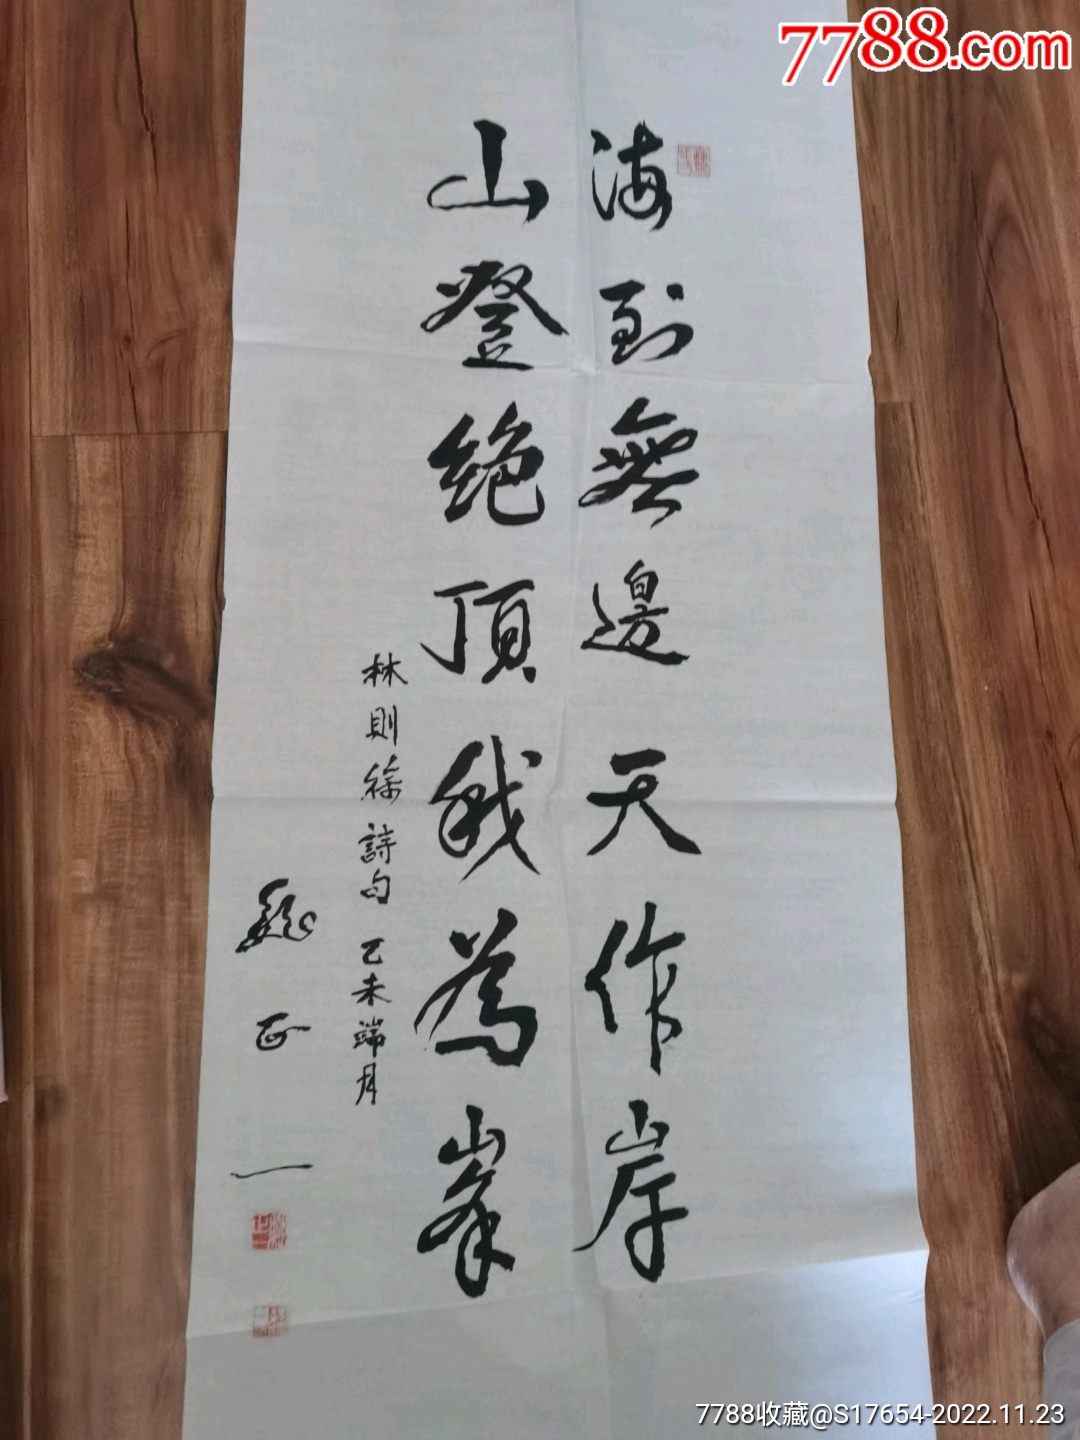 7788.com
海到無邊天作岸
山登絶頂我為峯
林則徐詩句 乙未端月
魏正一
7788收藏@S17654-2022.11.23